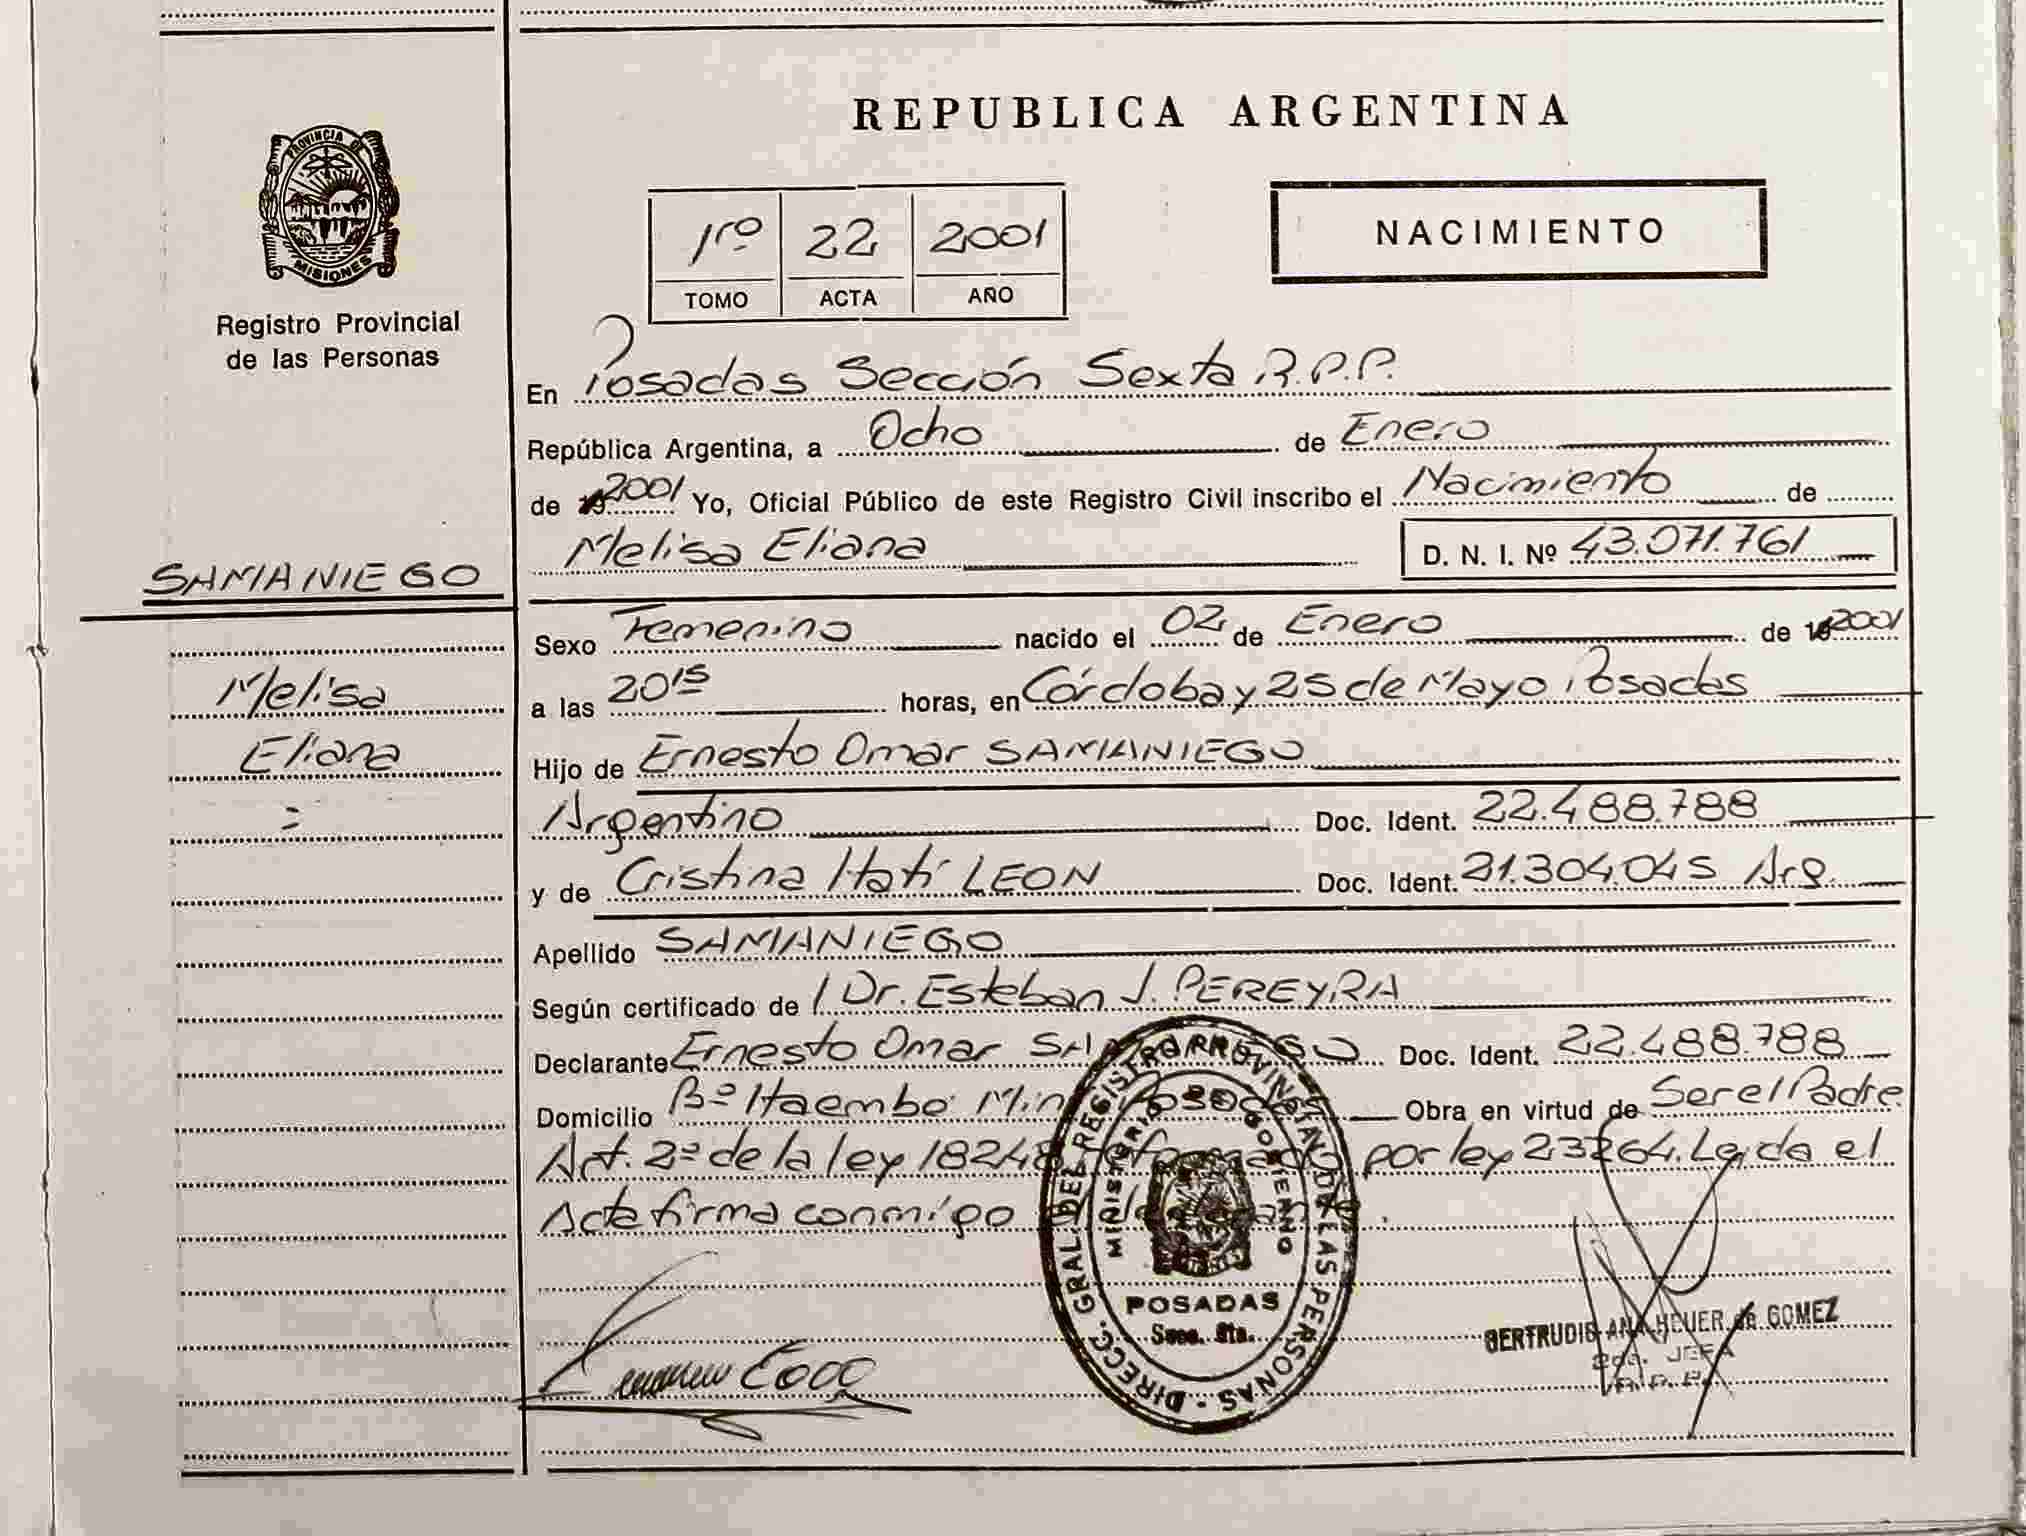 REPUBLICA ARGENTINA
PROVINCIA DE
MISIONES
Registro Provincial
de las Personas
1ro 22 2001
TOMO ACTA AÑO
NACIMIENTO
En Posadas Sección Sexta R.P.P.
República Argentina, a Ocho de Enero
de 2001 Yo, Oficial Público de este Registro Civil inscribo el Nacimiento de
Melisa Eliana D. N. I. Nº 43.071.761
SAMANIEGO
Melisa
Eliana
=
Sexo Femenino nacido el 02 de Enero de 2001
a las 20 15 horas, en Córdoba y 25 de Mayo Posadas
Hijo de Ernesto Omar SAMANIEGO
Argentino Doc. Ident. 22.488.788
y de Cristina Itatí LEON Doc. Ident. 21.304.045 Arg.
Apellido SAMANIEGO
Según certificado de / Dr. Esteban J. PEREYRA
Declarante Ernesto Omar SAMANIEGO Doc. Ident. 22.488.788
Domicilio Bº Itaembé Miní Posadas Obra en virtud de Ser el Padre
Art. 2º de la ley 18248 reformado por ley 23264. Leida el
Acta firma conmigo el declarante.
DIRECC. GRAL. DEL REGISTRO PROVINCIAL DE LAS PERSONAS
MINISTERIO DE GOBIERNO
POSADAS
Secc. 6ta.
GERTRUDIS ANA HEUER de GOMEZ
2da. JEFA
R.P.P.